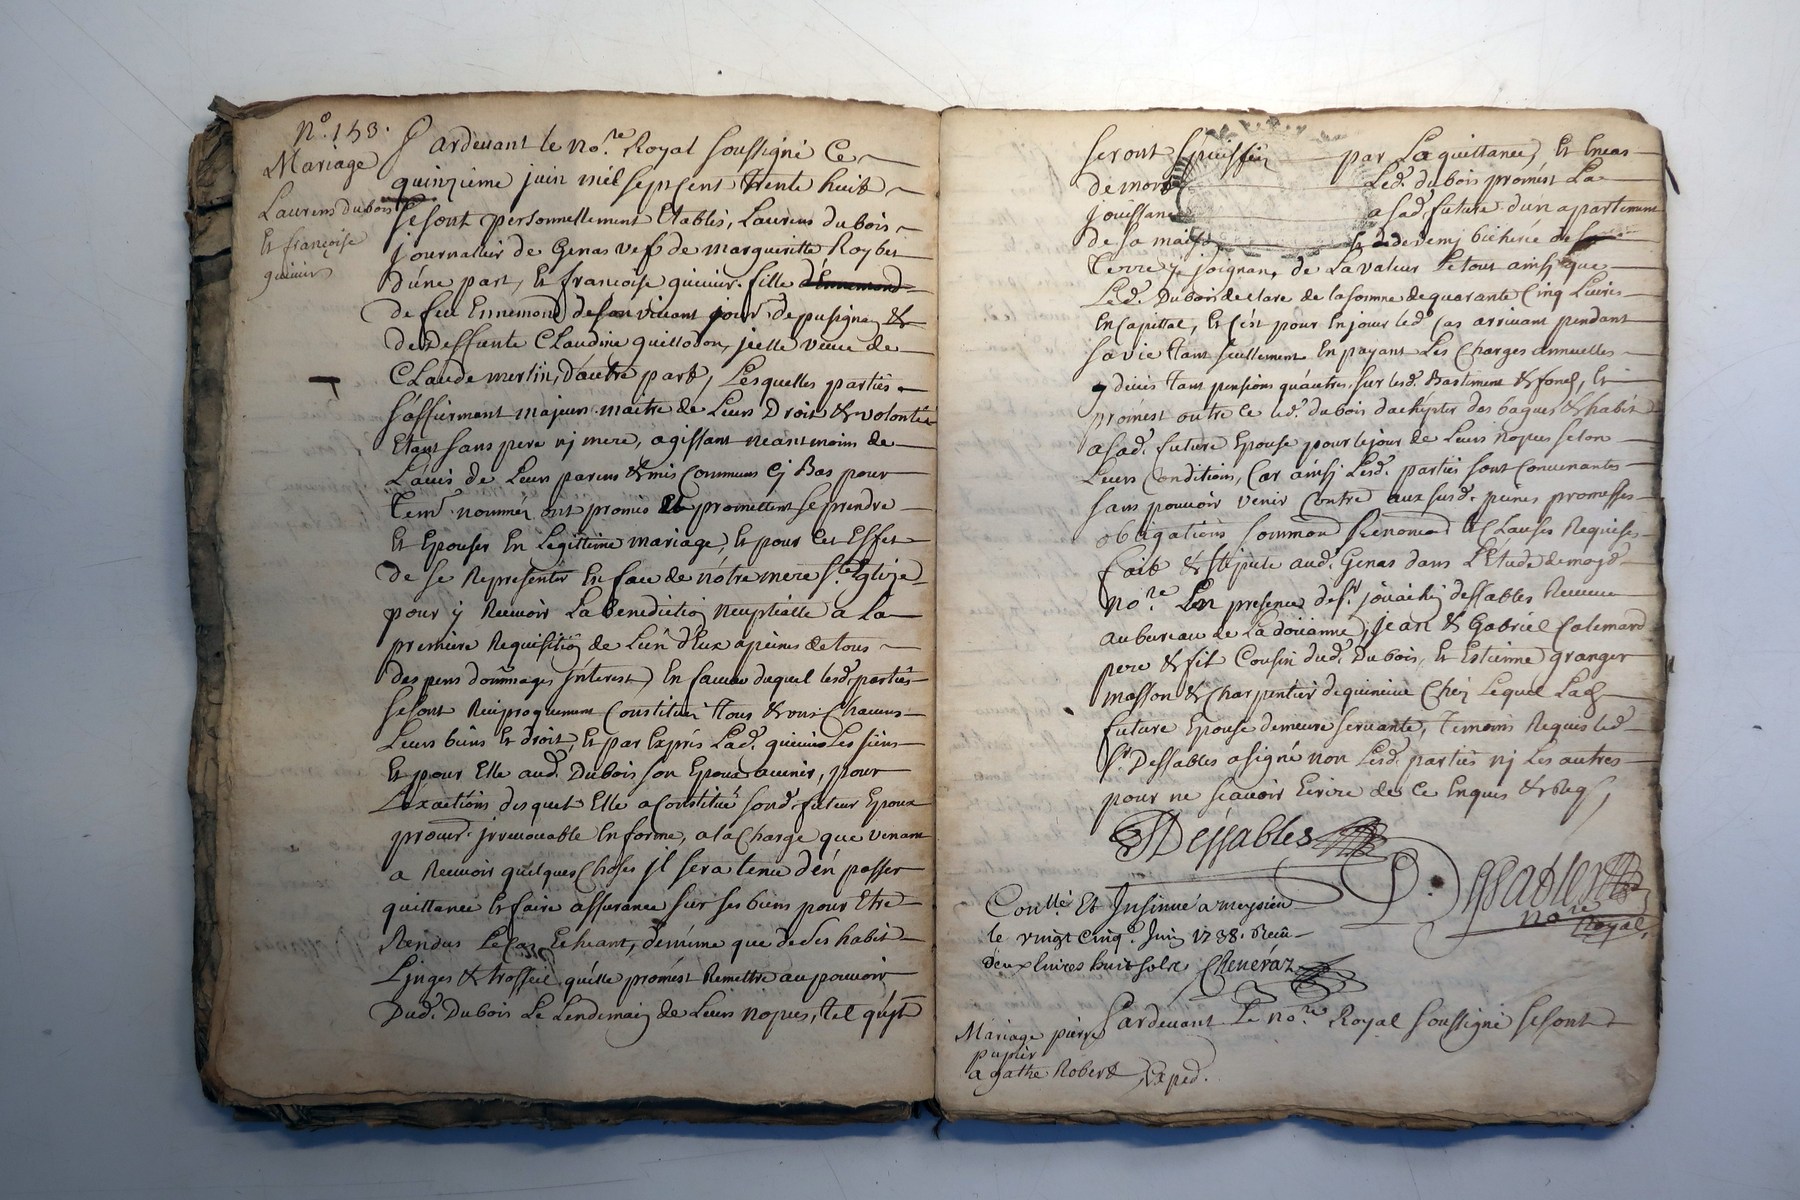 N.º 153.
Mariage
Laurens dubois
Et françoise
quinin
Pardevant le no.re Royal soussigné Ce
quinzieme juin mil sept cent trente huit
se sont personnellement Etablis, Laurens dubois
journallier de Genas vef de margueritte Roybet
d'une part, Et françoise fille d'Ennemond
de feu Ennemond de son vivant de pusignan &
de deffunte Claudine Guillodon, jcelle veuve de
Claude merlin, d'autre part, Lesquelles parties
s'affirment majeurs maitre de Leurs Droit & volonté
Etant sans pere nj mere, agissant neantmoins de
L'avis de Leurs parens & amis Communs Cj Bas pour
Tem. nommés ont promis & promettent se prendre
Et Epouser En Legittime mariage, Et pour Cet Effet
de se Representer En face de nôtre mere S.te Eglize
pour ÿ Recevoir La Benediction neuptialle a La
premiere Requisition de L'un d'Eux a peines de tous
despens dommages jnterest, En faveur duquel lesd. parties
se sont Reciproquement Constitué tous & uns Chacuns
Leurs biens Et droit, Et par Exprés Lad. Les siens
Et pour Elle aud. Dubois son Epoux avenir, pour
L'exactions desquels Elle a Constitué sond. futeur Epoux
procur. jrrevocable En forme, a la Charge que venant
a Recevoir quelques Choses jl sera tenu d'en passer
quittance Et faire assurance sur ses biens pour Etre
Rendus Le Cas Echeant, de mème que de ses habit
Linges & trosseil qu'elle promest Remettre au pouvoir
Dud. Dubois Le Lendemain de Leurs nopces, tel qu'jl
seront par La quittance, Et En cas
de mort Led. dubois promest La
jouissance a sad. future d'un apartement
de sa maison & de demj bicherée de
Terre ÿ joignan, de La valeur Le tout ainsj que
Led. Dubois declare de la somme de quarante Cinq Livres
En Capittal, Et c'est pour En jouir led. Cas arrivant pendant
sa vie tant seullement En payant Les Charges annuelles
tant pensions qu'autres sur lesd. Bastiment & fonds, Et
promest outre Ce led. dubois d'achepter des bagues & habits
a sad. future Epouse pour le jour de Leurs nopces selon
Leurs Conditions, Car ainsj Lesd. parties sont Convenantes
sans pouvoir venir Contre aux susd. peines promesses
obligations Renoncia & Clauses Requises
fait & stipulé aud. Genas dans L'Etude de moyd.
no.re En presence de S.r desfables Receveur
au bureau de La doüanne, jean & Gabriel Calemard
pere & fils Cousin dud. Dubois, Et Estienne granger
masson & Charpentier de Chez Lequel Lad.
future Epouse demeure servante, Temoins Requis led.
S.r Desfables a signé non Lesd. parties nj Les autres
pour ne scavoir Ecrire de Ce Enquis & Req,
Desfables
no.re
Royal
Con.llé Et Insinué a meysieu
le vingt cinq.e Juin 1738. Receu
deux livres huit sols, Cheneraz
Mariage pierre
pupier
agathe Robert
Pardevant Le no.re Royal soussigné se sont
Exped.